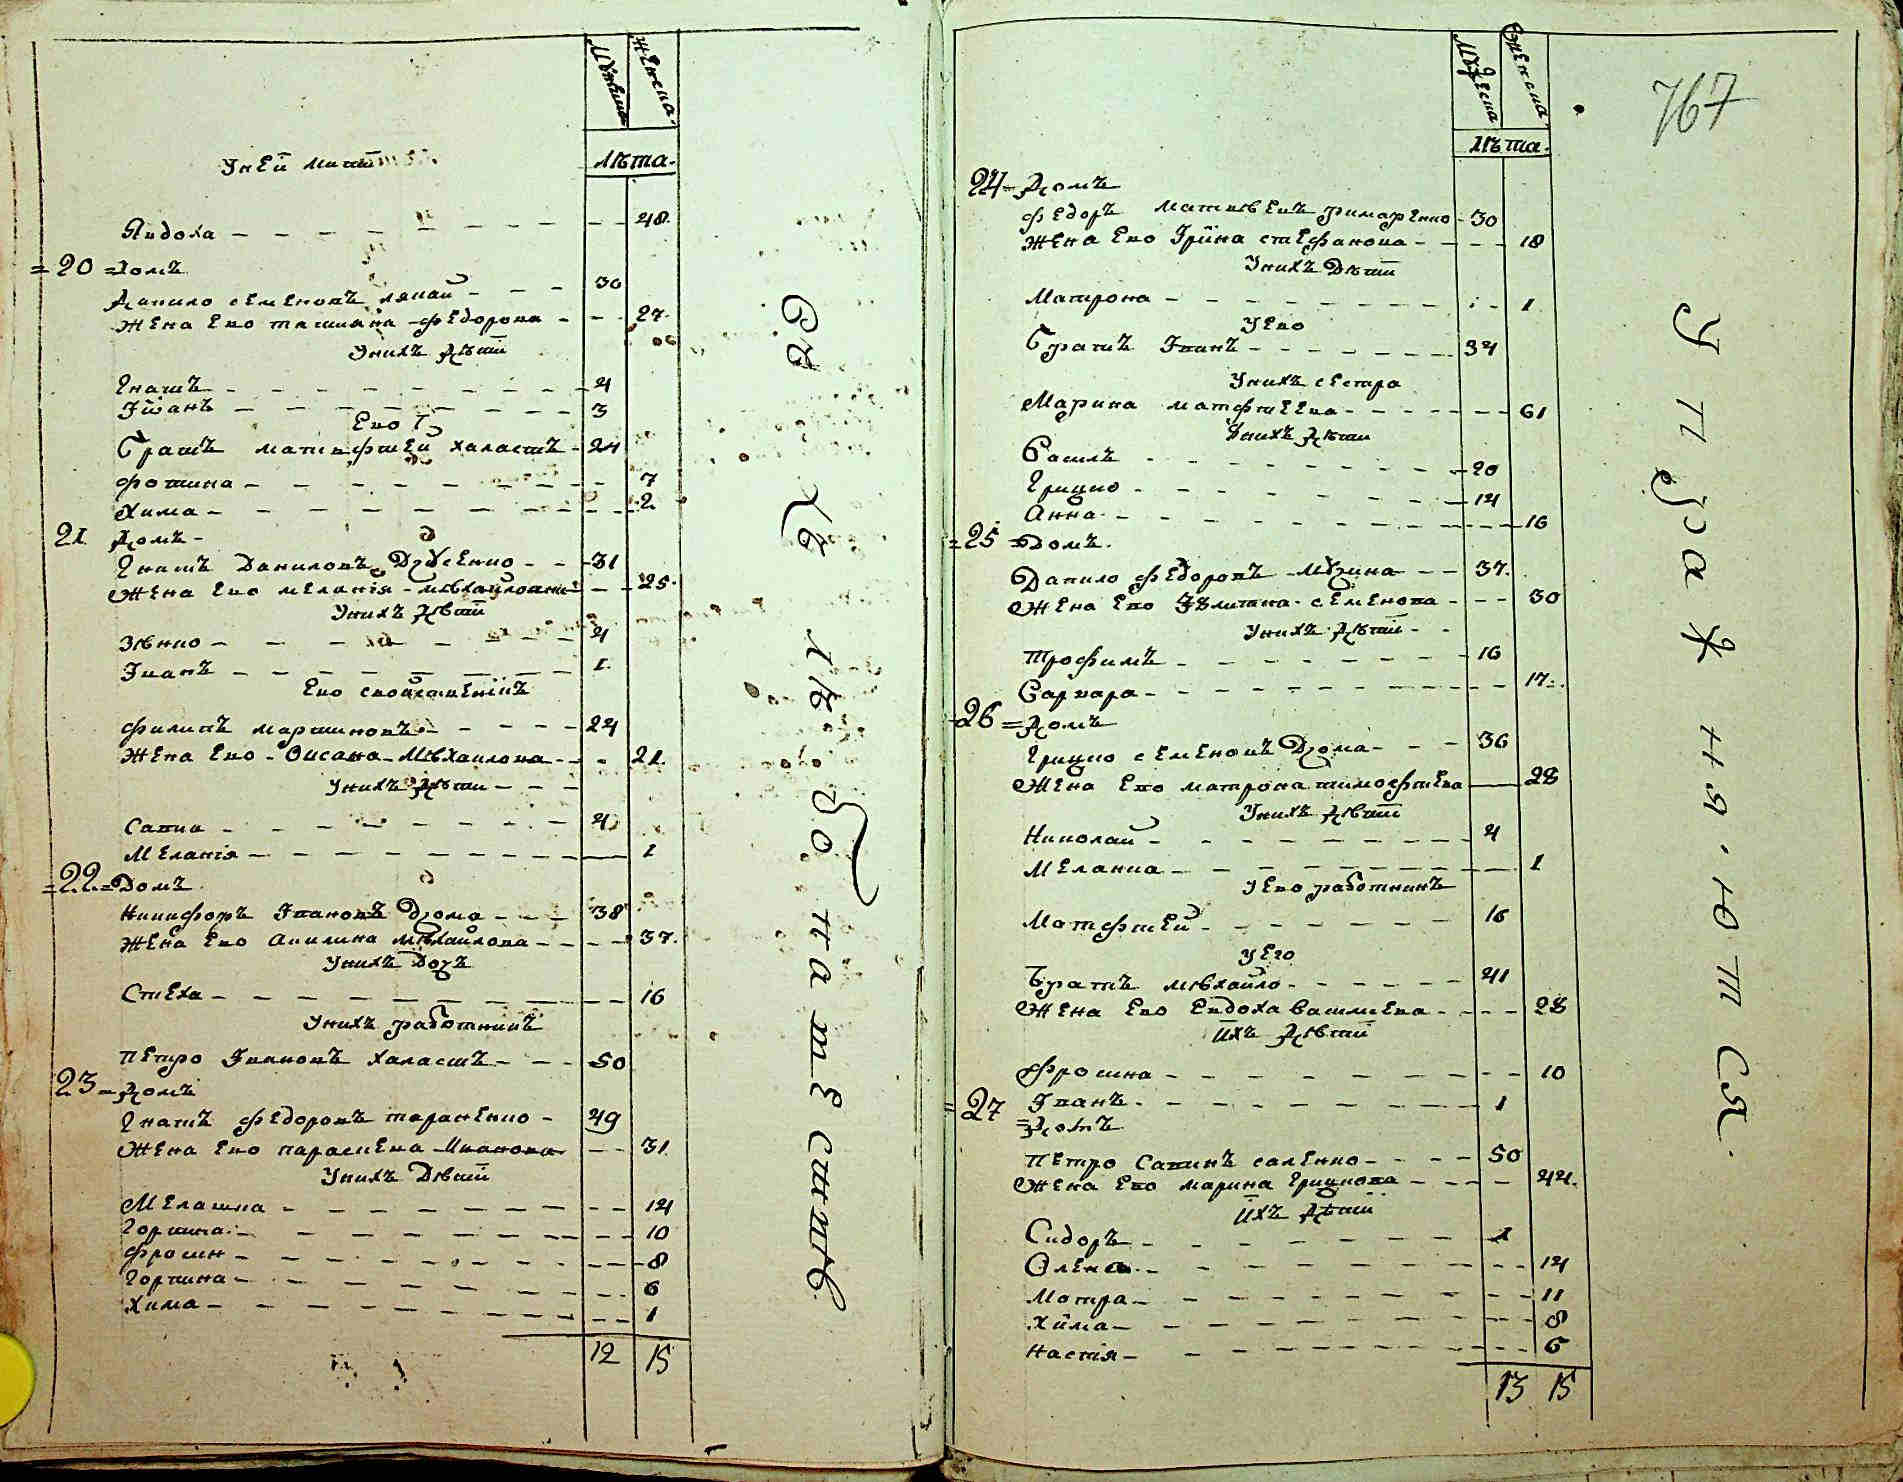 Мужеска
Женска
Лѣта
Унеи мати
Явдоха 48
20 Домъ
Данило семеновъ ляпаи 30
жена ево татиана федорова 27
Унихъ дѣти
Гнатъ 4
Іванъ 3
Ево
братъ матвфтей халастъ 24
фотина 7
Хима 2
21 Домъ
Гнатъ Даниловъ 31
жена ево меланія мѣхайловна 25
Унихъ дѣти
4
Іванъ 1
Ево свойственікъ
филипъ мартиновъ 24
жена ево Оксана Мѣхаилова 21
Унихъ дѣти
Савка 4
Меланія 1
22 Домъ
Никифоръ Івановъ Дрома 38
жена ево Акилина мѣхайлова 37
Унихъ
Стеха 16
Унихъ работникъ
петро Івановъ халастъ 50
23 Домъ
Гнатъ федоровъ тараненко 49
жена ево параскева Иванова 31
Унихъ Дѣти
Мелашка 14
10
фросин 8
Горпина 6
Хима 1
12 15
Сукъ лѣбо нашѣ скипѣ
Мужеска
Женска
767
Лѣта
24 Домъ
федоръ матвѣевъ римаренко 30
жена ево Іріина стефанова 18
Унихъ Дѣти
Матрона 1
Уево
братъ Іванъ 34
Унихъ сестра
Марина матфтеева 61
Унихъ дѣти
Василъ 20
Грицко 14
Анна 16
25 Домъ
Данило федоровъ 37
жена ево Іулитана семенова 30
Унихъ дѣти
трофимъ 16
Варвара 17
26 Домъ
Грицко семеновъ Дрома 36
жена ево матрона тимофтева 28
Унихъ дѣти
Николай 4
Меланка 1
Уево работникъ
Матфтей 16
Уего
Братъ мѣхайло 41
жена ево Евдоха василева 28
ихъ дѣти
фросина 10
Іванъ 1
27 Домъ
петро Савинъ саленко 50
жена ево марина грицкова 44
ихъ дѣти
Сидоръ 1
Олена 14
Мотра 11
хима 8
настія 6
13 15
упражняются.